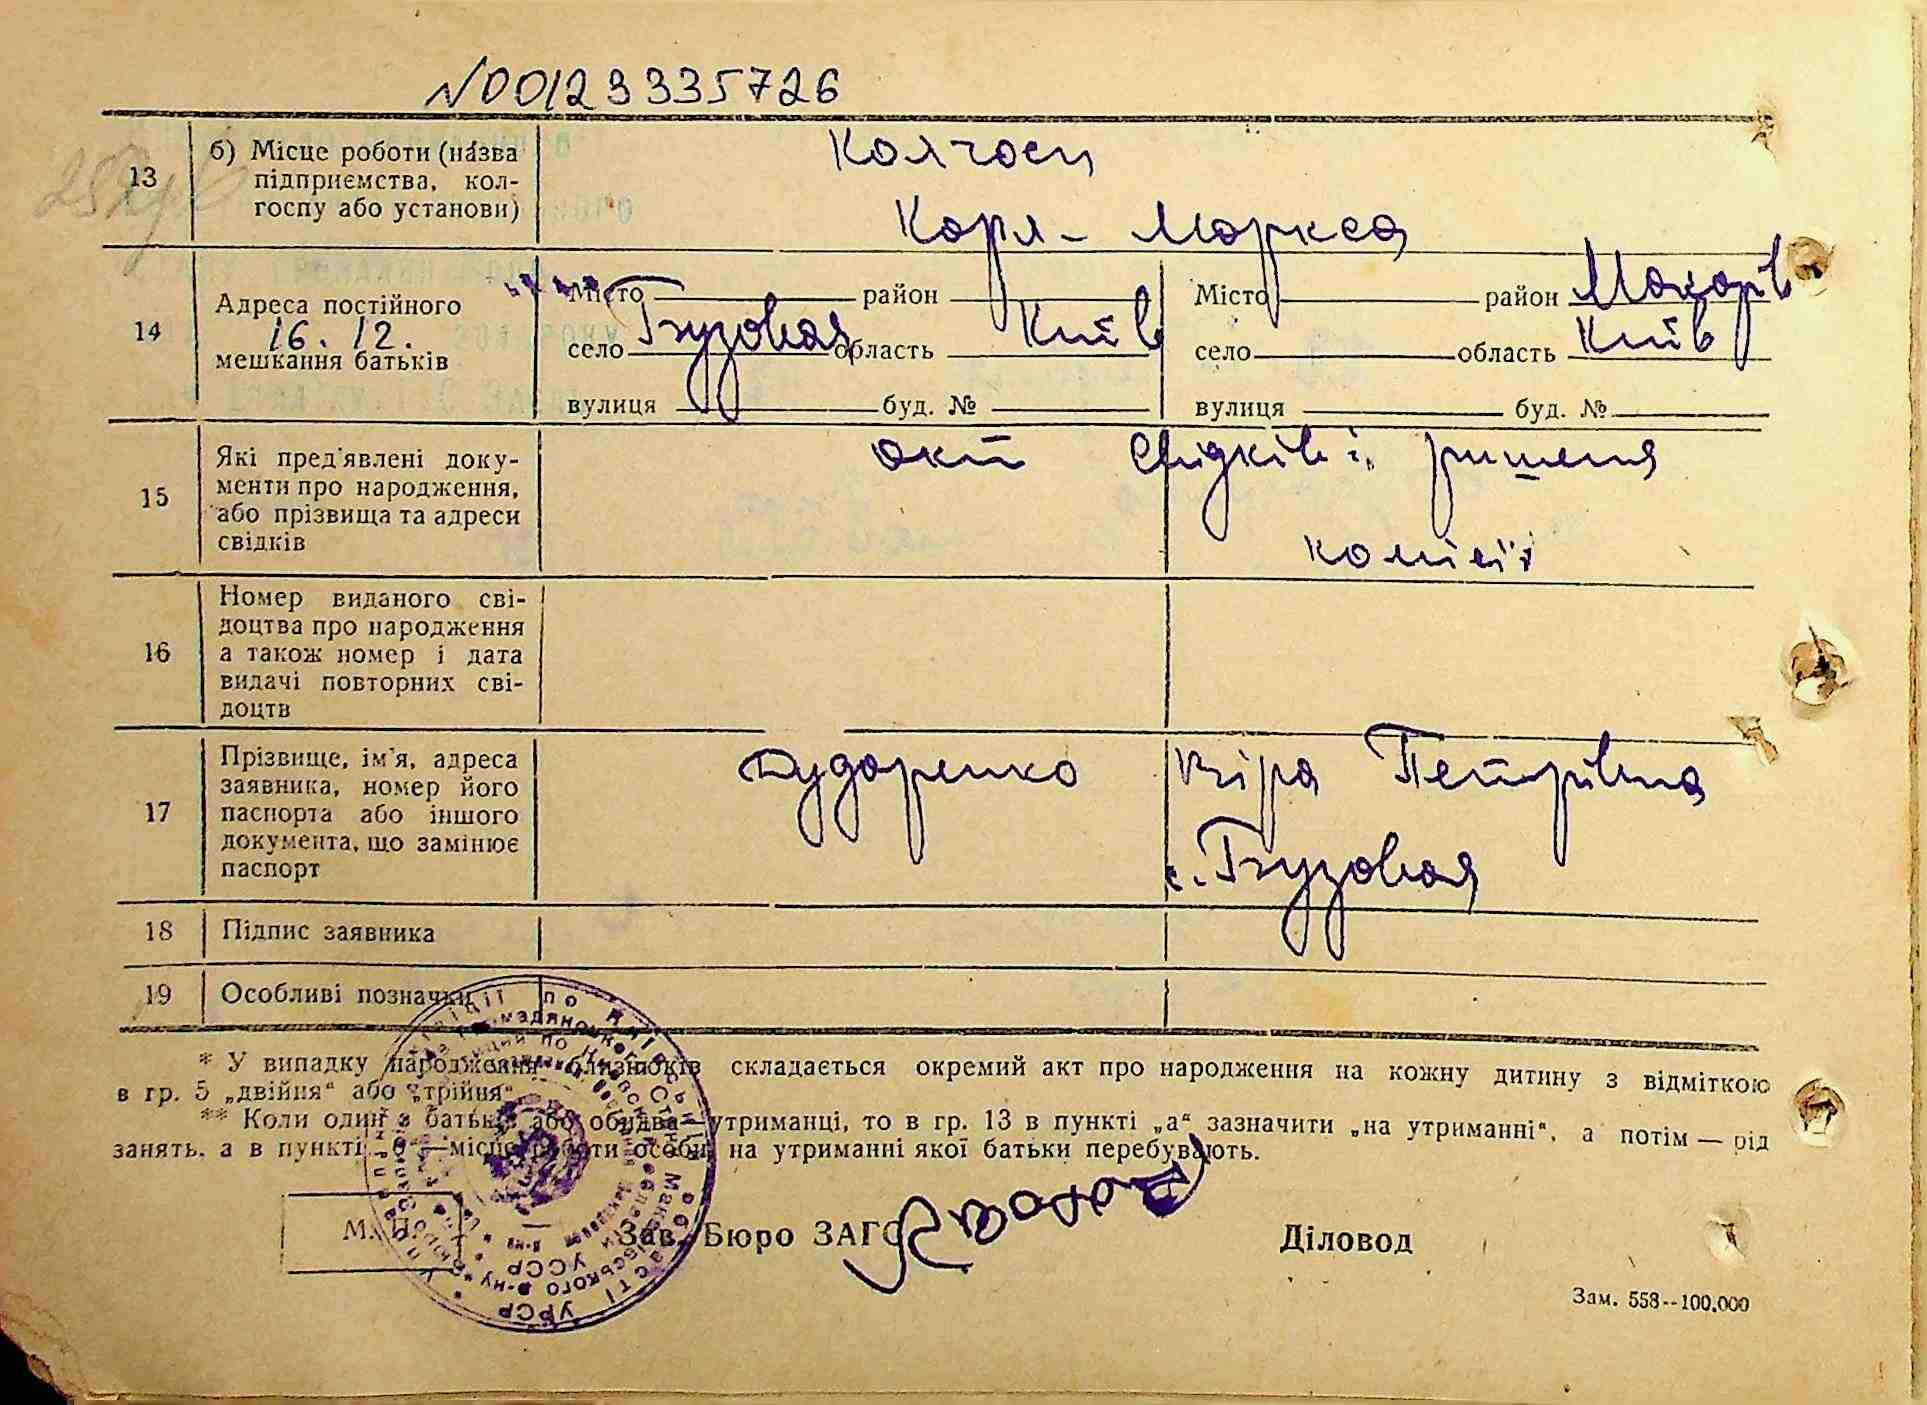 N00123335726
13
б) Місце роботи (назва
підприємства, кол-
госпу або установи)
Колгосп
Карл - Маркса
14
Адреса постійного
16. 12.
мешкання батьків
Місто район
село Гвузовая область Київ
вулиця буд. №
Місто район Макарів
село область Київ
вулиця буд. №
15
Які пред'явлені доку-
менти про народження,
або прізвища та адреси
свідків
акт свідків і рішеня
комісії
16
Номер виданого сві-
доцтва про народження
а також номер і дата
видачі повторних сві-
доцтв
17
Прізвище, ім'я, адреса
заявника, номер його
паспорта або іншого
документа, що замінює
паспорт
Дударенко Віра Петрівна
с. Гвузовая
18 Підпис заявника
19 Особливі позначки
* У випадку народження близнюків складається окремий акт про народження на кожну дитину з відміткою
в гр. 5 „двійня“ або „трійня“.
** Коли один з батьків або обидва—утриманці, то в гр. 13 в пункті „а“ зазначити „на утриманні“, а потім — рід
занять, а в пункті „б“—місце роботи особи, на утриманні якої батьки перебувають.
М. П.
Зав. Бюро ЗАГС
Діловод
Зам. 558--100.000